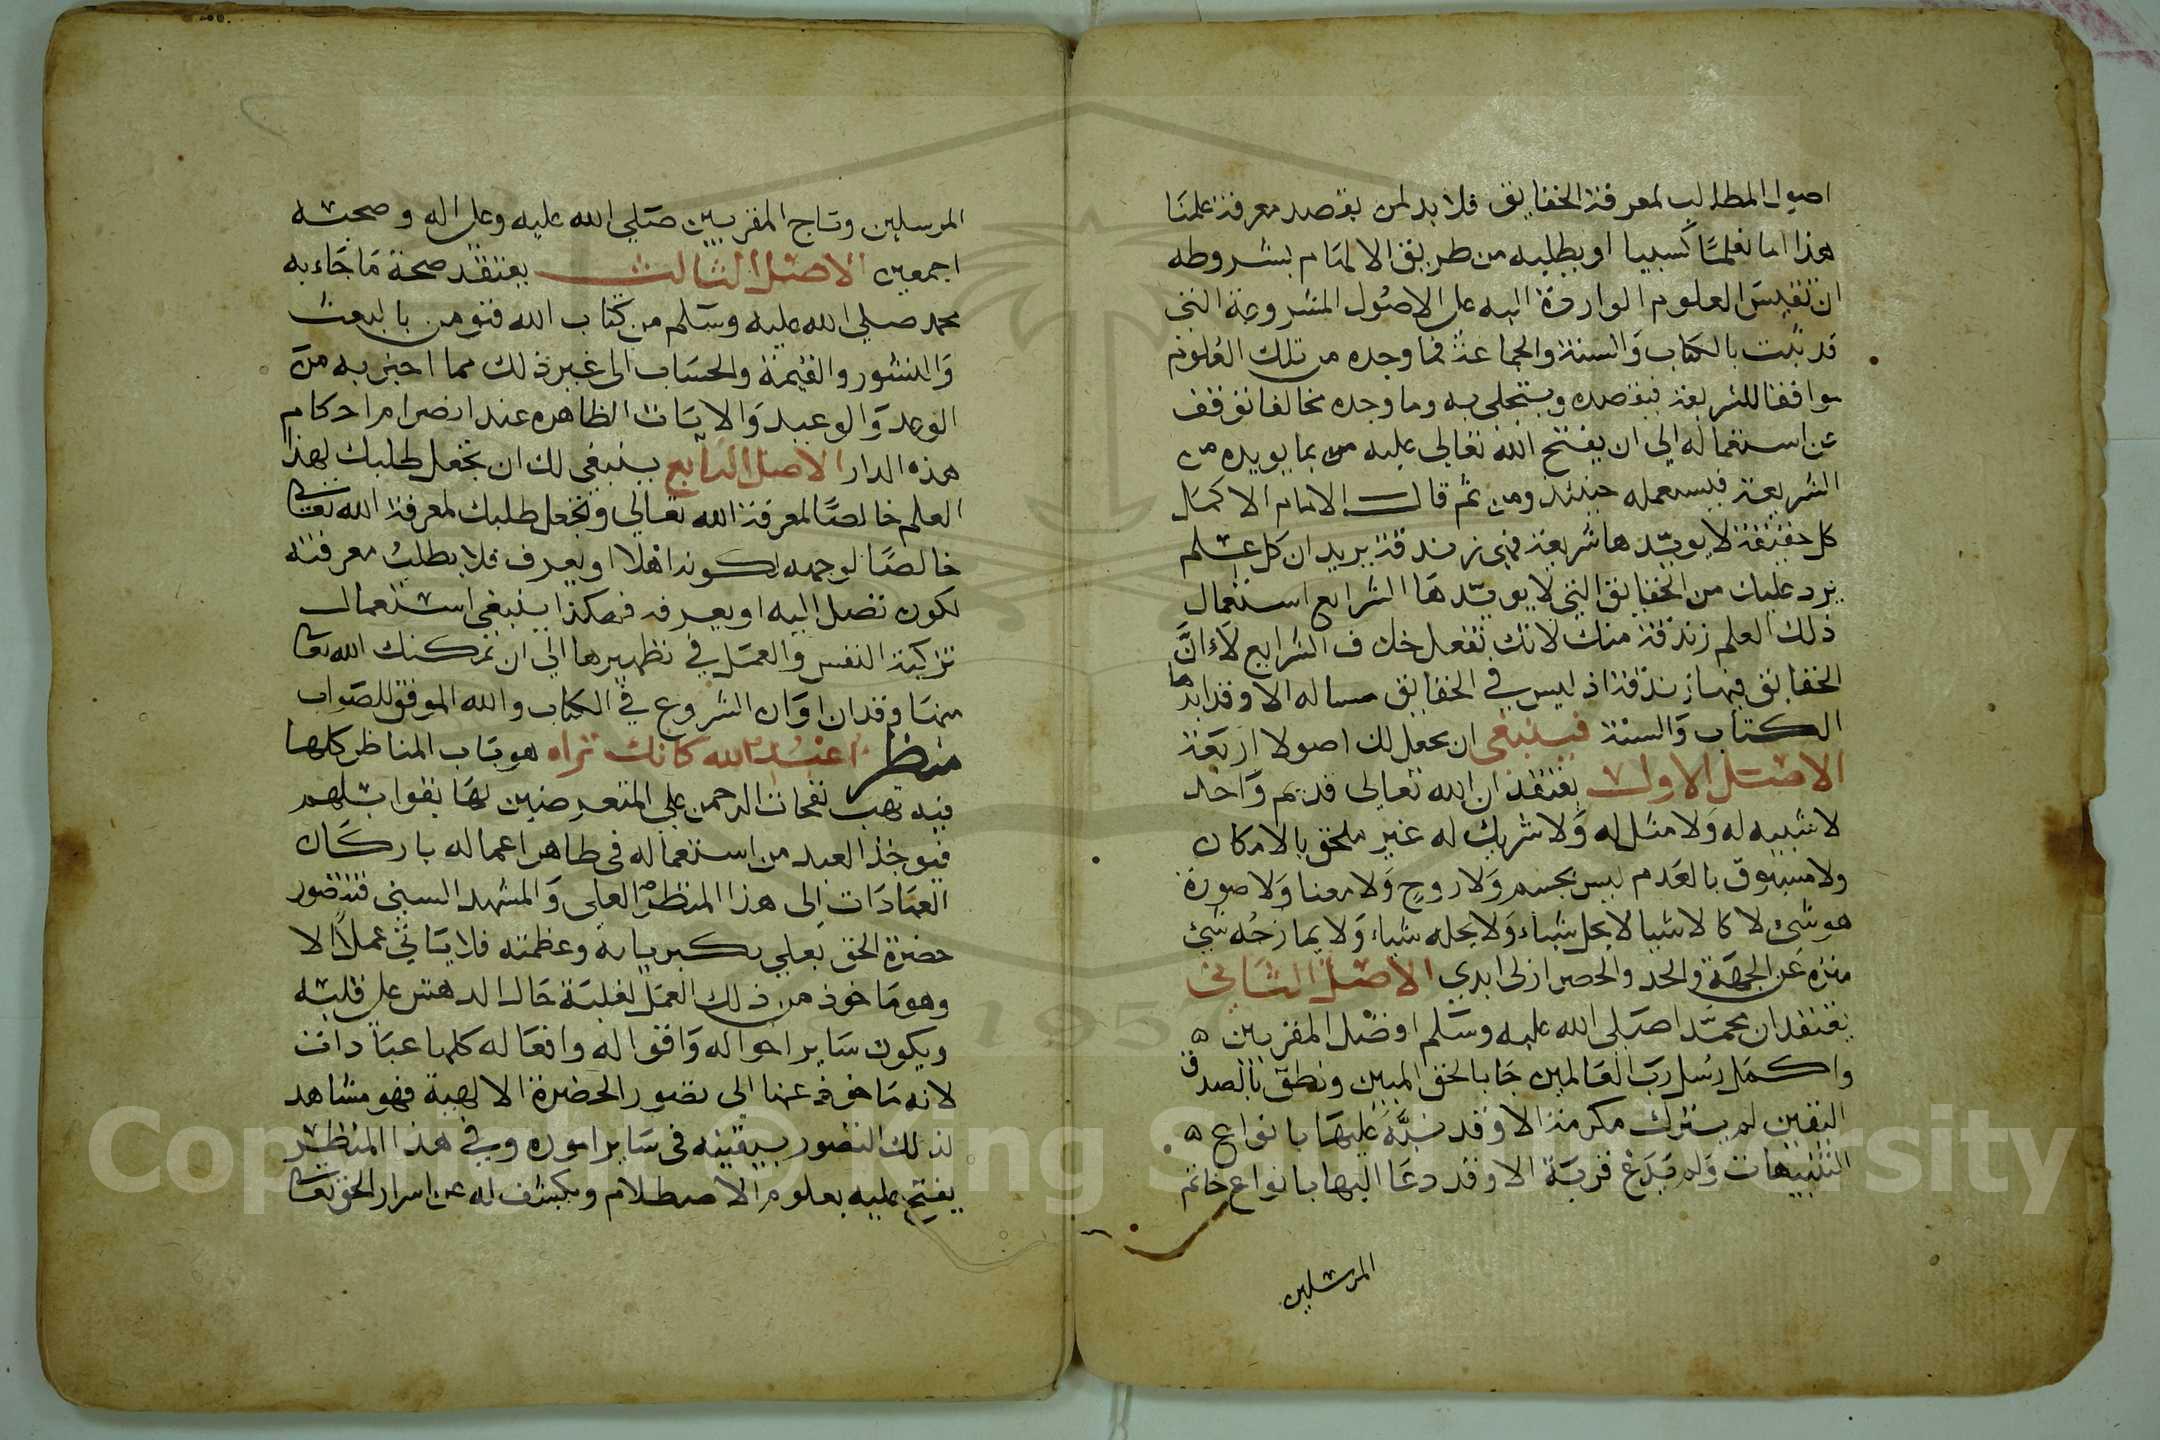 اصول المطالب لمعرفة الحقايق فلا بد لمن يقصد معرفة علمنا
هذا اما تعلمًا كسبيا او بطلبه من طريق الالهام بشروطه
ان تقيس العلوم الواردة اليه على الاصول المشروعة التي
قد ثبتت بالكتاب والسنة والجماعة فما وجده من تلك العلوم
موافقا للشريعة فيقصده ويتحلى به وما وجده مخالفا توقف
عن استعماله الى ان يفتح الله تعالى عليه من بما يويده من
الشريعة فيستعمله حينئذ ومن ثم قال الامام الاكمل
كل حقيقة لا يويدها شريعة فهي زندقة يريد ان كل علم
يرد عليك من الحقايق التي لا يويدها الشرايع استعمال
ذلك العلم زندقة منك لانك تفعل خلاف الشرايع لا ان
الحقايق فيها زندقة اذ ليس في الحقايق مساله الا وقد ايدها
الكتاب والسنة فينبغي ان يجعل لك اصولا اربعة
الاصل الاول يعتقد ان الله تعالى قديم واحد
لا شبيه له ولا مثل له ولا شريك له غير ملحق بالامكان
ولا مسبوق بالعدم ليس بجسم ولا روح ولا معنا ولا صورة
هو شيء لا كالاشيا لا يحل شياء ولا يحله شياء ولا يمازجه شيء
منزه عن الجهة والحد والحصر ازلي ابدي الاصل الثاني
يعتقد ان محمدا صلى الله عليه وسلم افضل المقربين ه
واكمل رسل رب العالمين جا بالحق المبين ونطق بالصدق
اليقين لم يترك مكرمة الا وقد نبه عليها بانواع ه
التنبيهات ولم يدع قربة الا وقد دعا اليها بانواع خاتم
المرسلين
المرسلين وتاج المقربين صلى الله عليه وعلى اله وصحبه
اجمعين الاصل الثالث يعتقد صحة ما جاء به
محمد صلى الله عليه وسلم من كتاب الله فتومن بالبعث
والنشور والقيمة والحساب الى غير ذلك مما اخبر به من
الوعد والوعيد والايات الظاهره عند انصرام احكام
هذه الدار الاصل الرابع ينبغي لك ان تجعل طلبك لهذا
العلم خالصًا لمعرفة الله تعالى وتجعل طلبك لمعرفة الله تعالى
خالصًا لوجهه لكونه اهلا او يعرف فلا يطلب معرفته
لكون تصل اليه او يعرفه فهكذا ينبغي استعمال
تزكية النفس والعمل في تطهيرها الى ان تمكنك الله تعالى
منها وقد ان اوان الشروع في الكتاب والله الموفق للصواب
منظر اعبد الله كانك تراه هو باب المناظر كلها
فيه تهب نفحات الرحمن على المتعرضين لها بقوابلهم
فيوخذ العبد من استعماله في ظاهر اعماله باركان
العبادات الى هذا المنظر العلي والمشهد السني فتتصور
حضرة الحق تعلى بكبريايه وعظمته فلا ياتي عملًا الا
وهو ماخوذ من ذلك العمل لغلبة حال الدهش على قلبه
ويكون ساير احواله واقواله وافعاله كلها عبادات
لانه ماخوذ عنها الى تصور الحضرة الالهية فهو مشاهد
لذلك التصور بيقينه في ساير اموره وفي هذا المنظر
يفتح عليه بعلوم الاصطلام ويكشف له عن اسرار الحق تعالى
Copyright © King Saud University
1957